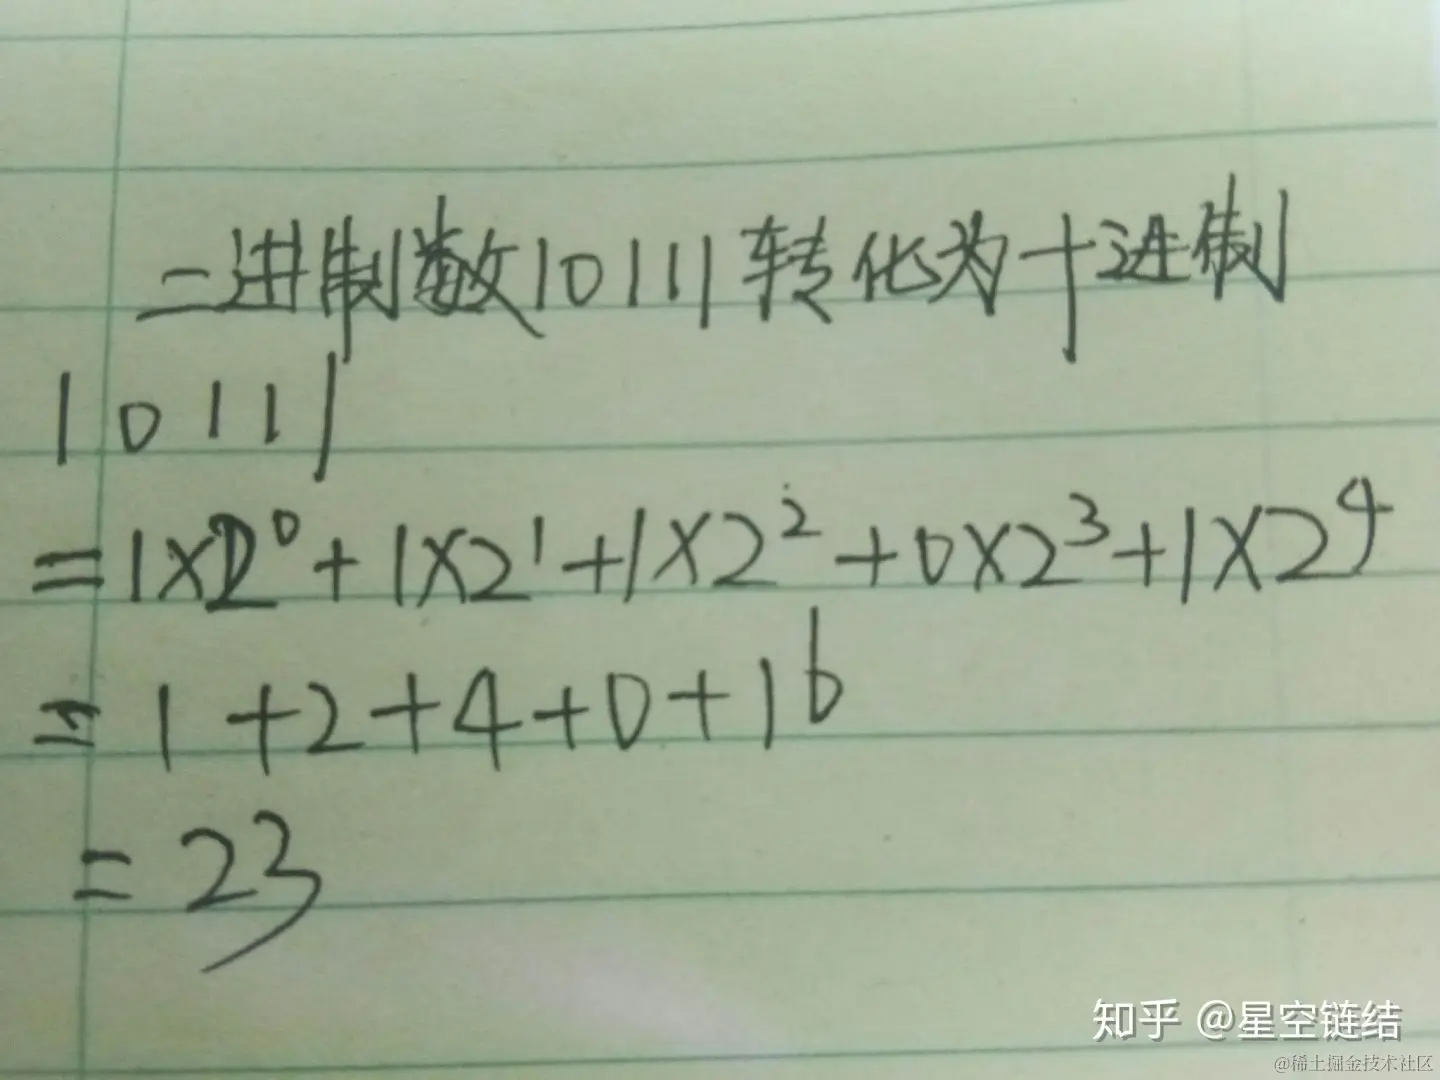 二进制数10111转化为十进制
10111
=1×2⁰+1×2¹+1×2²+0×2³+1×2⁴
=1+2+4+0+16
=23
知乎 @星空链结
@稀土掘金技术社区